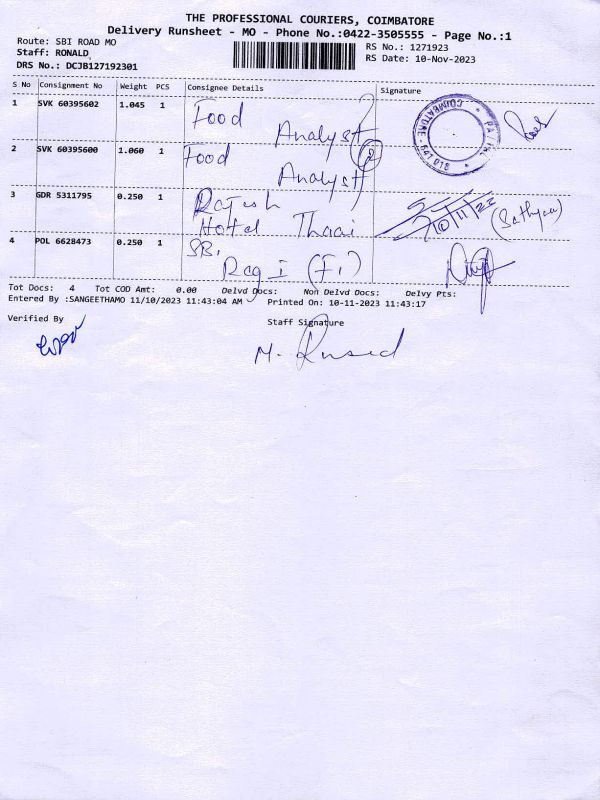 THE PROFESSIONAL COURIERS, COIMBATORE
Delivery Runsheet - MO - Phone No.:0422-3505555 - Page No.:1
Route: SBI ROAD MO
RS No.: 1271923
Staff: RONALD
RS Date: 10-Nov-2023
DRS No.: DCJB127192301
S No Consignment No Weight PCS Consignee Details Signature
1 SVK 60395602 1.045 1 Food Analyst
COIMBATORE 641 018
2 SVK 60395600 1.060 1 Food Analyst 2
3 GDR 5311795 0.250 1 Rajesh
Hotel Thaai
10/11/23 (Sathyaa)
4 POL 6628473 0.250 1 SBI
Rag I (F1)
Tot Docs: 4 Tot COD Amt: 0.00 Delvd Docs: Non Delvd Docs: Delvy Pts:
Entered By :SANGEETHAMO 11/10/2023 11:43:04 AM Printed On: 10-11-2023 11:43:17
Verified By
Staff Signature